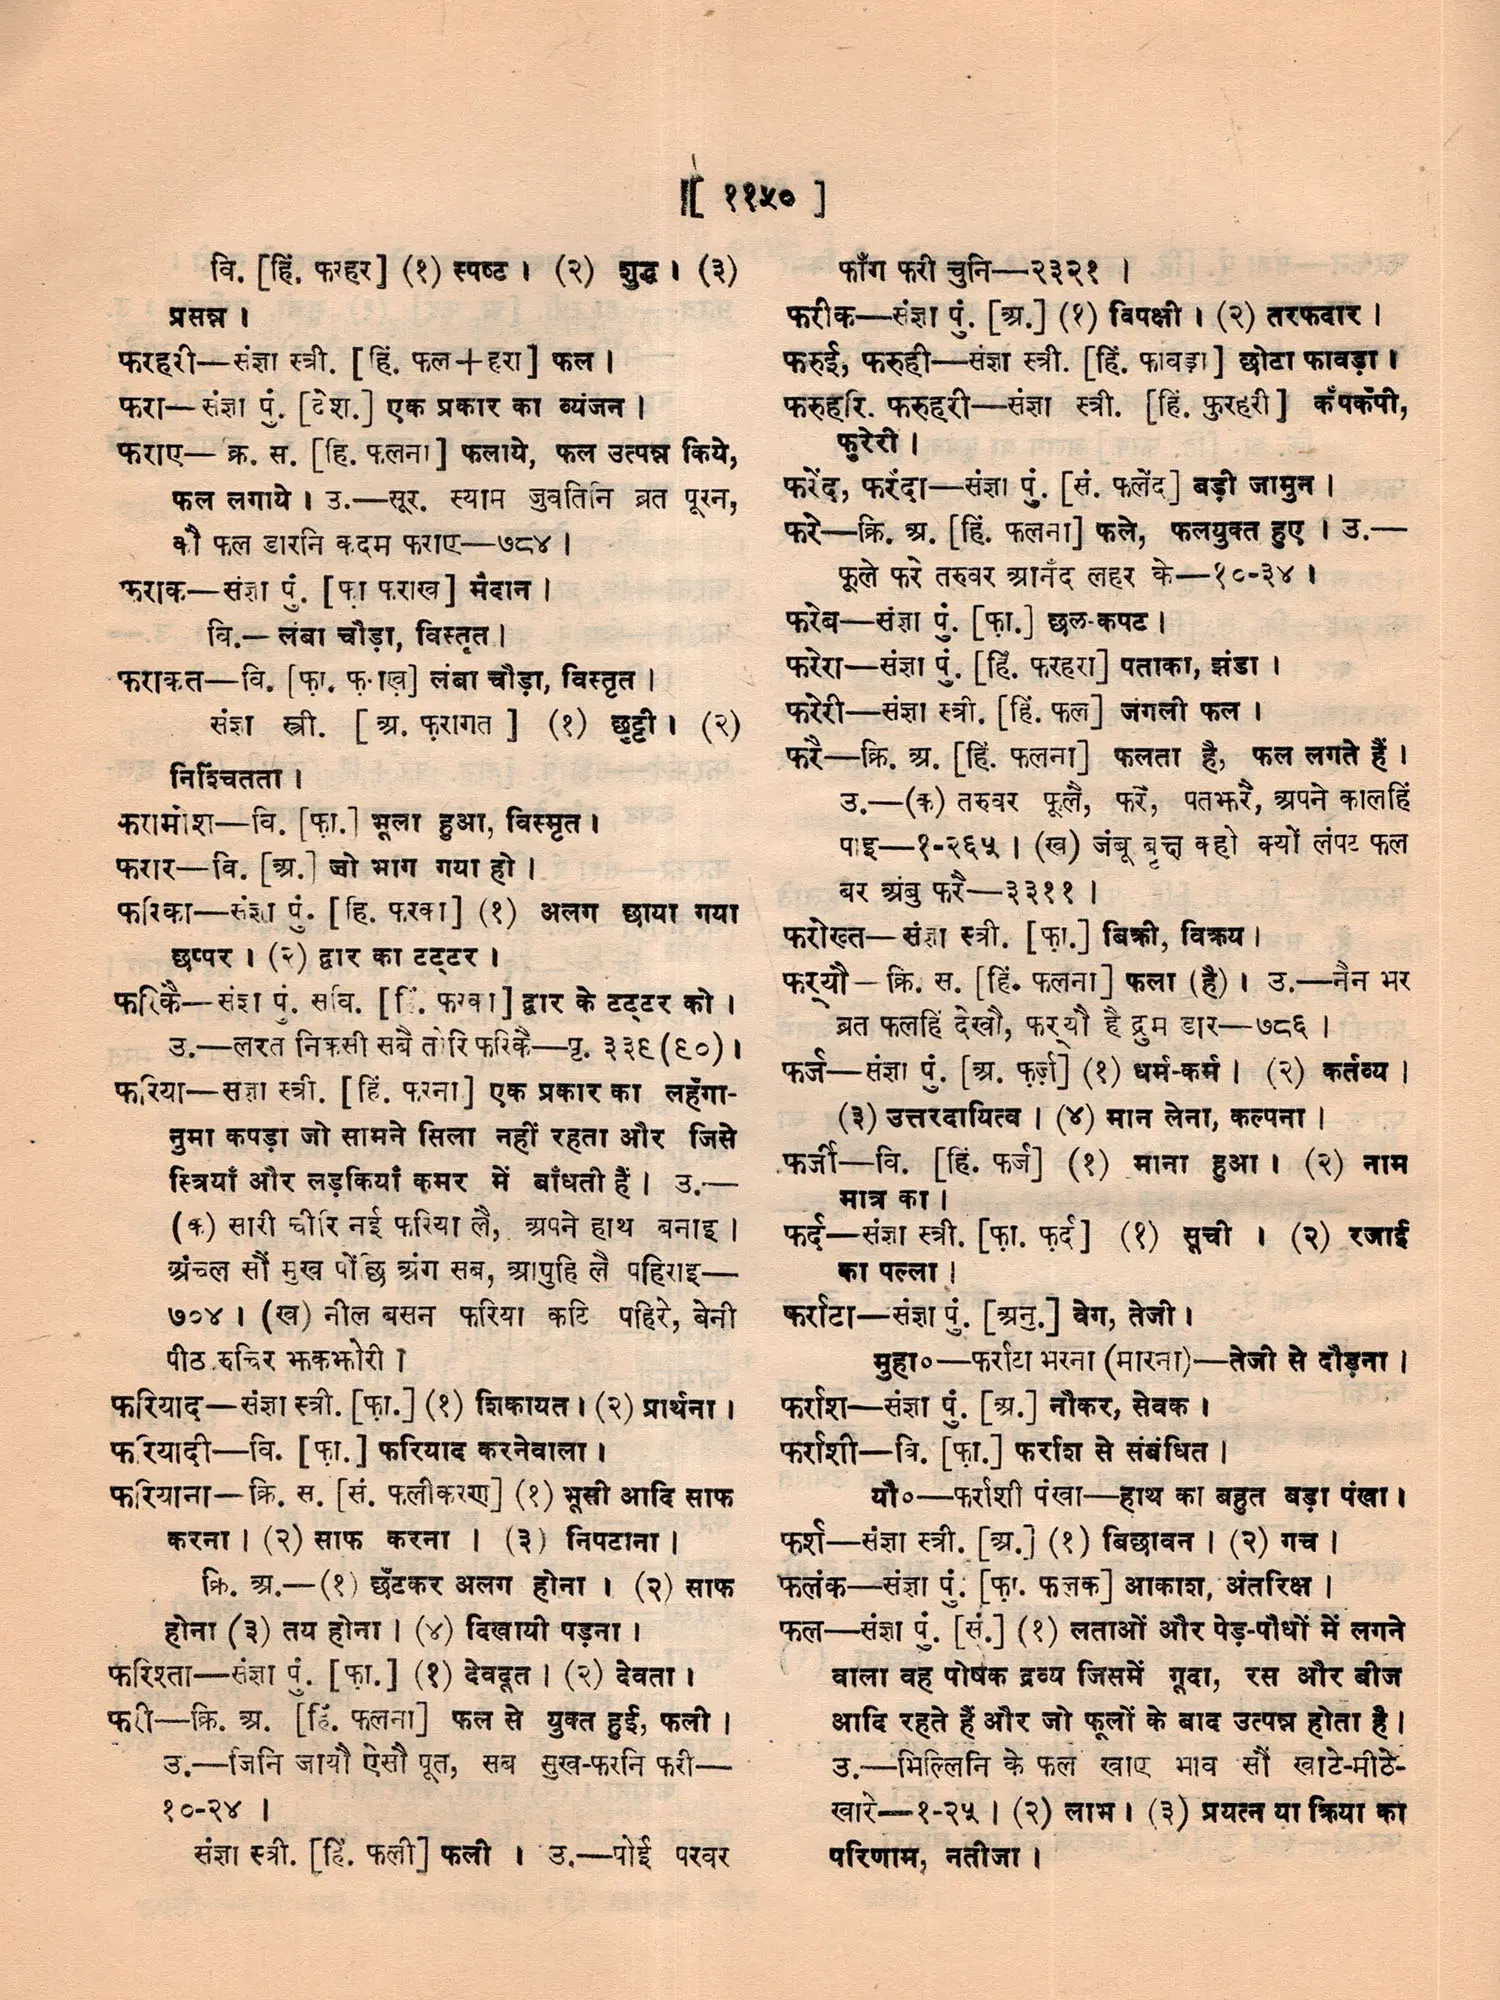 [ ११५० ]
वि. [हिं. फरहर] (१) स्पष्ट । (२) शुद्ध । (३)
प्रसन्न ।
फरहरी—संज्ञा स्त्री. [हिं. फल+हरा] फल ।
फरा—संज्ञा पुं. [देश.] एक प्रकार का व्यंजन ।
फराए—क्रि. स. [हि. फलना] फलाये, फल उत्पन्न किये,
फल लगाये । उ.—सूर. स्याम जुवतिनि ब्रत पूरन,
कौ फल डारनि कदम फराए—७८४ ।
फराक—संज्ञा पुं. [फ़ा फराख] मैदान ।
वि.—लंबा चौड़ा, विस्तृत ।
फराकत—वि. [फ़ा. फ़राख़] लंबा चौड़ा, विस्तृत ।
संज्ञा स्त्री. [अ. फ़रागत] (१) छुट्टी । (२)
निश्चितता ।
फरामोश—वि. [फ़ा.] भूला हुआ, विस्मृत ।
फरार—वि. [अ.] जो भाग गया हो ।
फरिका—संज्ञा पुं. [हि. फरका] (१) अलग छाया गया
छप्पर । (२) द्वार का टट्टर ।
फरिकै—संज्ञा पुं. सवि. [हिं. फरका] द्वार के टट्टर को ।
उ.—लरत निकसी सबै तोरि फरिकै—पृ. ३३९(९०) ।
फरिया—संज्ञा स्त्री. [हिं. फरना] एक प्रकार का लहँगा-
नुमा कपड़ा जो सामने सिला नहीं रहता और जिसे
स्त्रियाँ और लड़कियाँ कमर में बाँधती हैं । उ.—
(क) सारी चीरि नई फरिया लै, अपने हाथ बनाइ ।
अंचल सौं मुख पोंछि अंग सब, आपुहि लै पहिराइ—
७०४ । (ख) नील बसन फरिया कटि पहिरे, बेनी
पीठ रुचिर झकझोरी ।
फरियाद—संज्ञा स्त्री. [फ़ा.] (१) शिकायत । (२) प्रार्थना ।
फरियादी—वि. [फ़ा.] फरियाद करनेवाला ।
फरियाना—क्रि. स. [सं. फलीकरण] (१) भूसी आदि साफ
करना । (२) साफ करना । (३) निपटाना ।
क्रि. अ.—(१) छँटकर अलग होना । (२) साफ
होना (३) तय होना । (४) दिखायी पड़ना ।
फरिश्ता—संज्ञा पुं. [फ़ा.] (१) देवदूत । (२) देवता ।
फरी—क्रि. अ. [हिं. फलना] फल से युक्त हुई, फली ।
उ.—जिनि जायौ ऐसौ पूत, सब सुख-फरनि फरी—
१०-२४ ।
संज्ञा स्त्री. [हिं. फली] फली । उ.—पोई परवर
फाँग फरी चुनि—२३२१ ।
फरीक—संज्ञा पुं. [अ.] (१) विपक्षी । (२) तरफदार ।
फरुई, फरुही—संज्ञा स्त्री. [हिं. फावड़ा] छोटा फावड़ा ।
फरुहरि. फरुहरी—संज्ञा स्त्री. [हिं. फुरहरी] कँपकँपी,
फुरेरी ।
फरेंद, फरेंदा—संज्ञा पुं. [सं. फलेंद] बड़ी जामुन ।
फरे—क्रि. अ. [हिं. फलना] फले, फलयुक्त हुए । उ.—
फूले फरे तरुवर आनँद लहर के—१०-३४ ।
फरेब—संज्ञा पुं. [फ़ा.] छल-कपट ।
फरेरा—संज्ञा पुं. [हिं. फरहरा] पताका, झंडा ।
फरेरी—संज्ञा स्त्री. [हिं. फल] जंगली फल ।
फरै—क्रि. अ. [हिं. फलना] फलता है, फल लगते हैं ।
उ.—(क) तरुवर फूलै, फरै, पतझरै, अपने कालहिं
पाइ—१-२६५ । (ख) जंबू बृच्छ कहो क्यों लंपट फल
बर अंबु फरै—३३११ ।
फरोख्त—संज्ञा स्त्री. [फ़ा.] बिक्री, विक्रय ।
फर्‌यौ—क्रि. स. [हिं. फलना] फला (है) । उ.—नैन भर
ब्रत फलहिं देखौ, फर्‌यौ है द्रुम डार—७८६ ।
फर्ज—संज्ञा पुं. [अ. फ़र्ज़] (१) धर्म-कर्म । (२) कर्तव्य ।
(३) उत्तरदायित्व । (४) मान लेना, कल्पना ।
फर्जी—वि. [हिं. फर्ज] (१) माना हुआ । (२) नाम
मात्र का ।
फर्द—संज्ञा स्त्री. [फ़ा. फ़र्द] (१) सूची । (२) रजाई
का पल्ला ।
फर्राटा—संज्ञा पुं. [अनु.] वेग, तेजी ।
मुहा०—फर्राटा भरना (मारना)—तेजी से दौड़ना ।
फर्राश—संज्ञा पुं. [अ.] नौकर, सेवक ।
फर्राशी—वि. [फ़ा.] फर्राश से संबंधित ।
यौ०—फर्राशी पंखा—हाथ का बहुत बड़ा पंखा ।
फर्श—संज्ञा स्त्री. [अ.] (१) बिछावन । (२) गच ।
फलंक—संज्ञा पुं. [फ़ा. फलक] आकाश, अंतरिक्ष ।
फल—संज्ञा पुं. [सं.] (१) लताओं और पेड़-पौधों में लगने
वाला वह पोषक द्रव्य जिसमें गूदा, रस और बीज
आदि रहते हैं और जो फूलों के बाद उत्पन्न होता है ।
उ.—भिल्लिनि के फल खाए भाव सौं खाटे-मीठे-
खारे—१-२५ । (२) लाभ । (३) प्रयत्न या क्रिया का
परिणाम, नतीजा ।